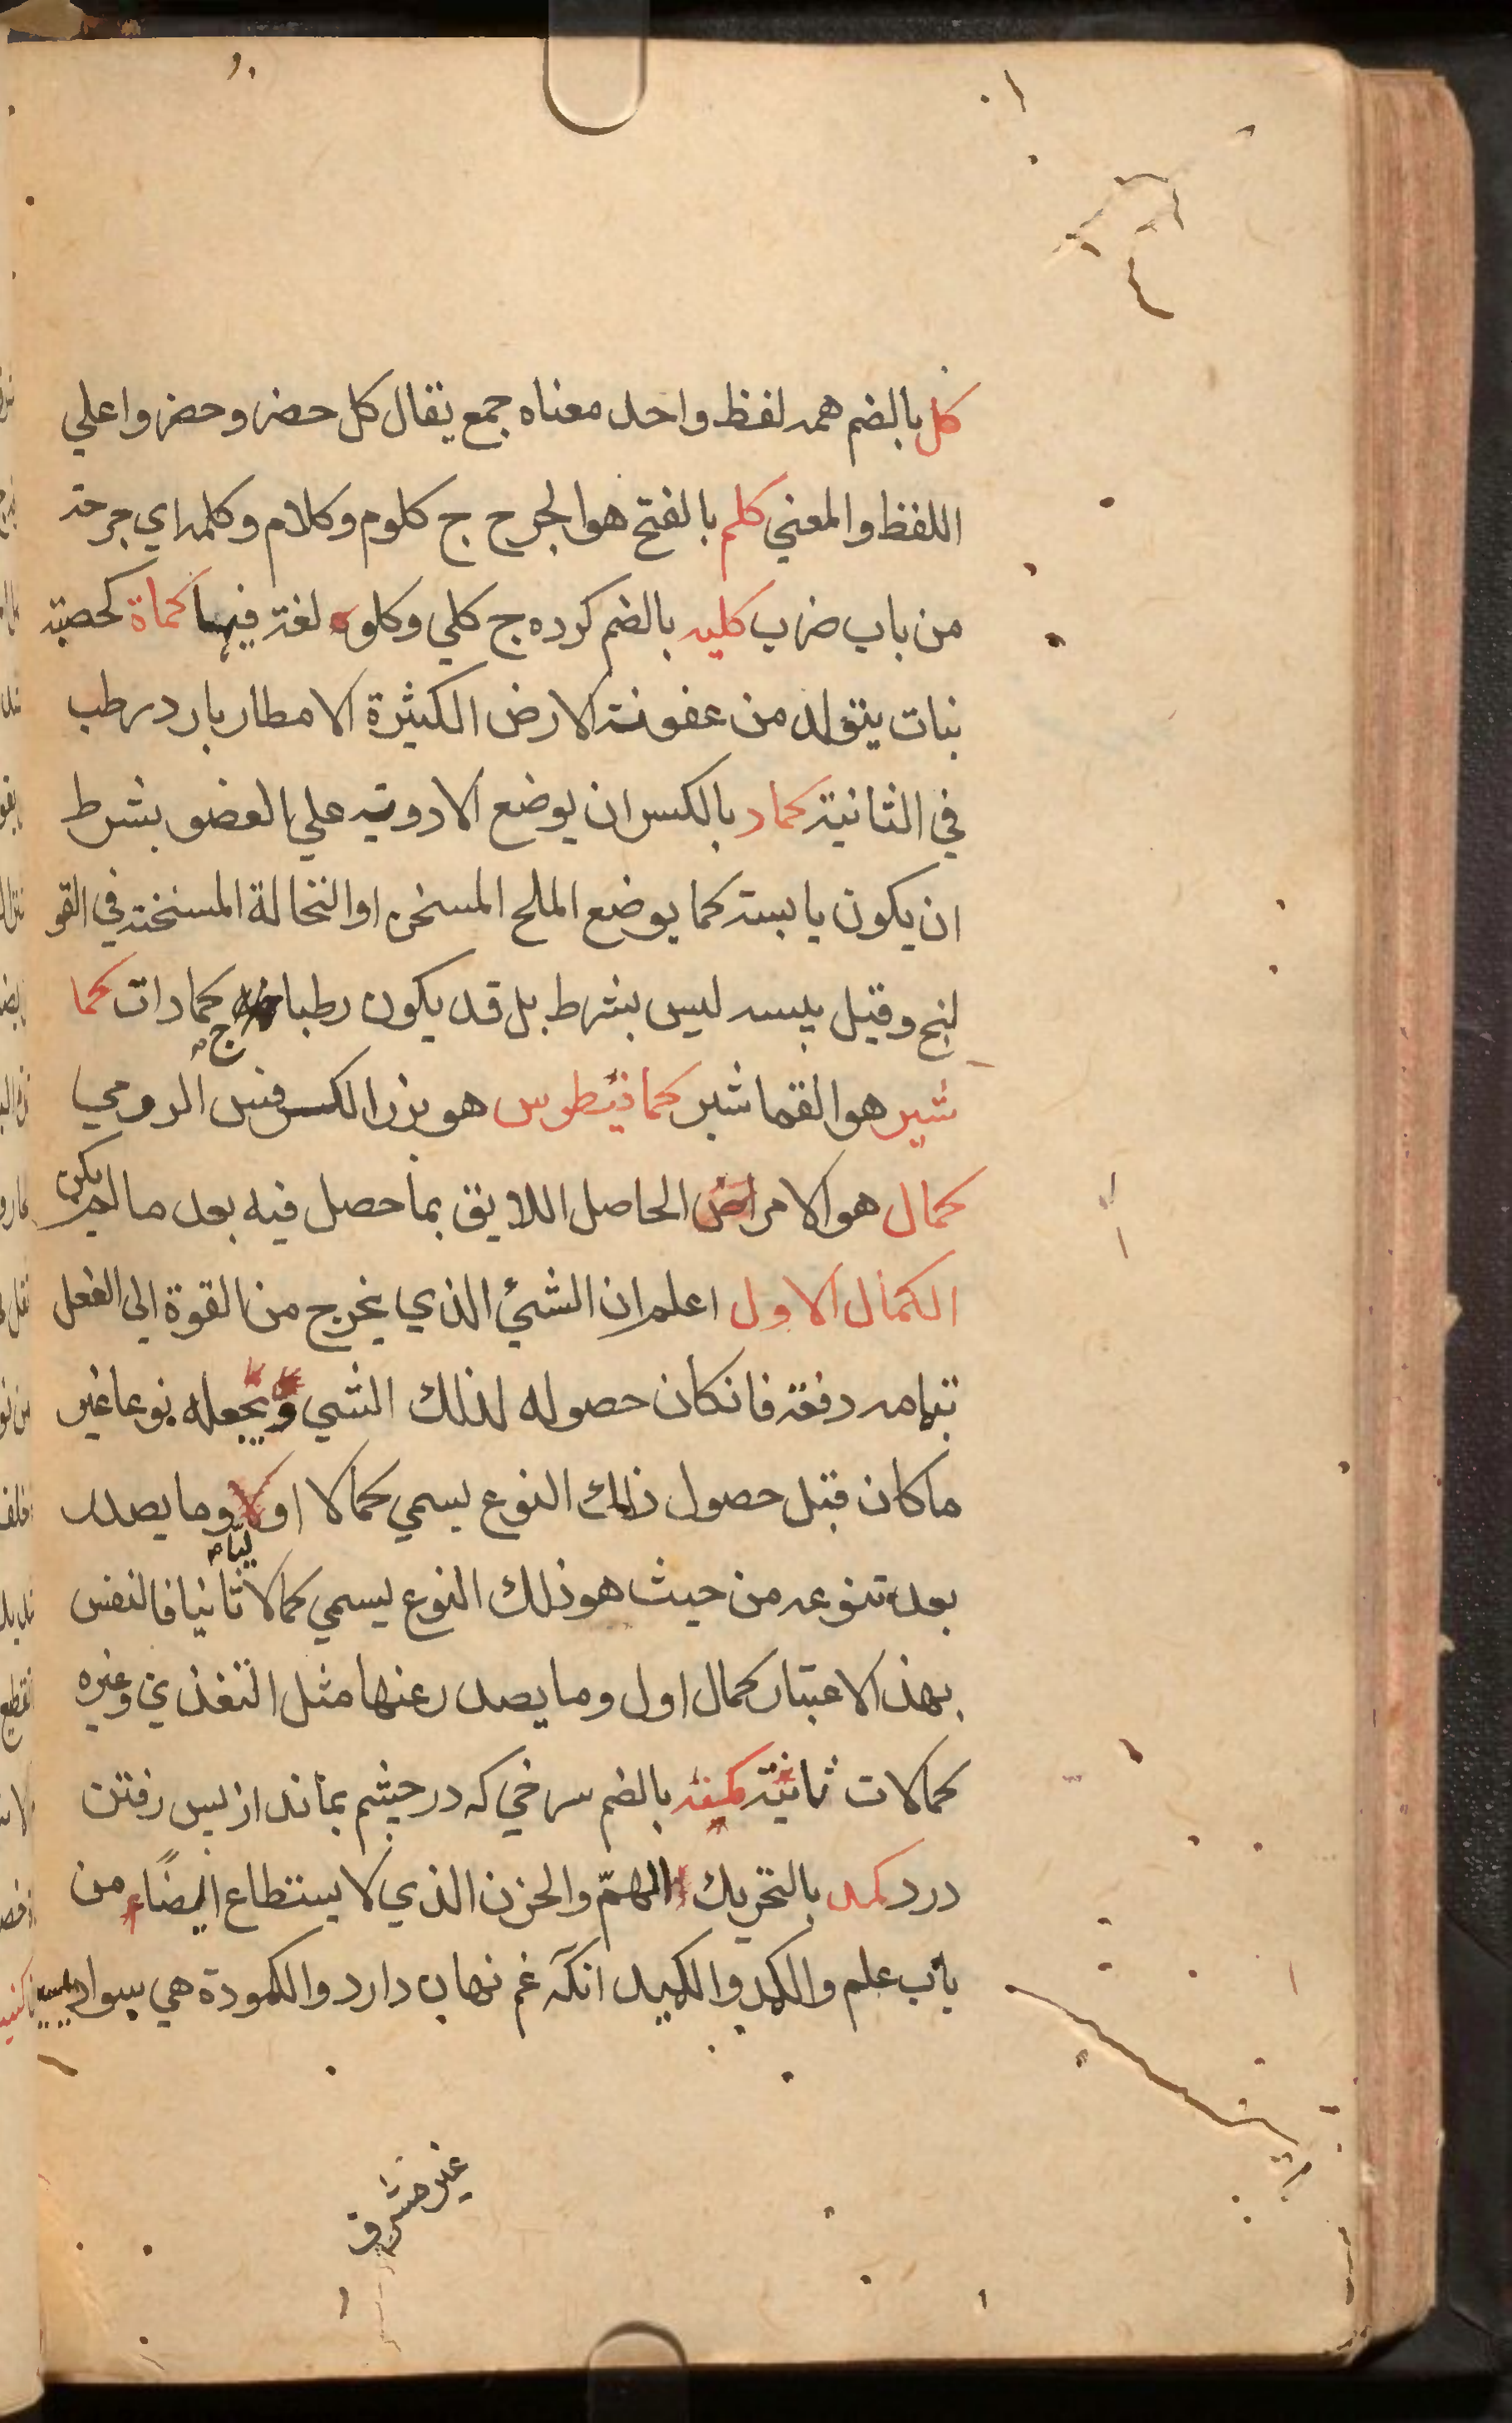 كل بالضم همه لفظ واحد معناه جمع يقال كل حضر وحضروا علي
اللفظ والمعني كلم بالفتح هو الجرح ج كلوم وكلام وكلمه اي جرحته
من باب ضرب كليه بالضم كرده ج كلي وكلوه لغة فيها كماة كحصبة
نبات يتولد من عفونة الارض الكثيرة الامطار بارد رطب
في الثانية كماد بالكسر ان يوضع الادوية علي العضو بشرط
ان يكون يابسة كما يوضع الملح المسخن او النخالة المسخنة في القو
لنج وقيل يبسه ليس بشرط بل قد يكون رطبا ج كمادات كما
شير هو القماشير كمافيطوس هو بزر الكرفس الرومي
كمال هو الامر الحاصل اللايق بما حصل فيه بعد ما لم يكن
الكمال الاول اعلم ان الشئ الذي يخرج من القوة الى الفعل
بتمامه دفعة فانكان حصوله لذلك الشي ويجعله نوعا غير
ما كان قبل حصول ذلك النوع يسمي كمالا اوليا وما يصدر
بعد تنوعه من حيث هو ذلك النوع يسمي كمالا ثانيا فالنفس
بهذ الاعتبار كمال اول وما يصدر عنها مثل التغذي وغيره
كمالات ثانية كمنه بالضم سرخي كه در چشم بماند از پس رفتن
درد كمد بالتحريك الهمّ والحزن الذي لا يستطاع امضاء من
باب علم والكمد والكميد انكه غم نهان دارد والكمودة هي سواد
غير مشرق